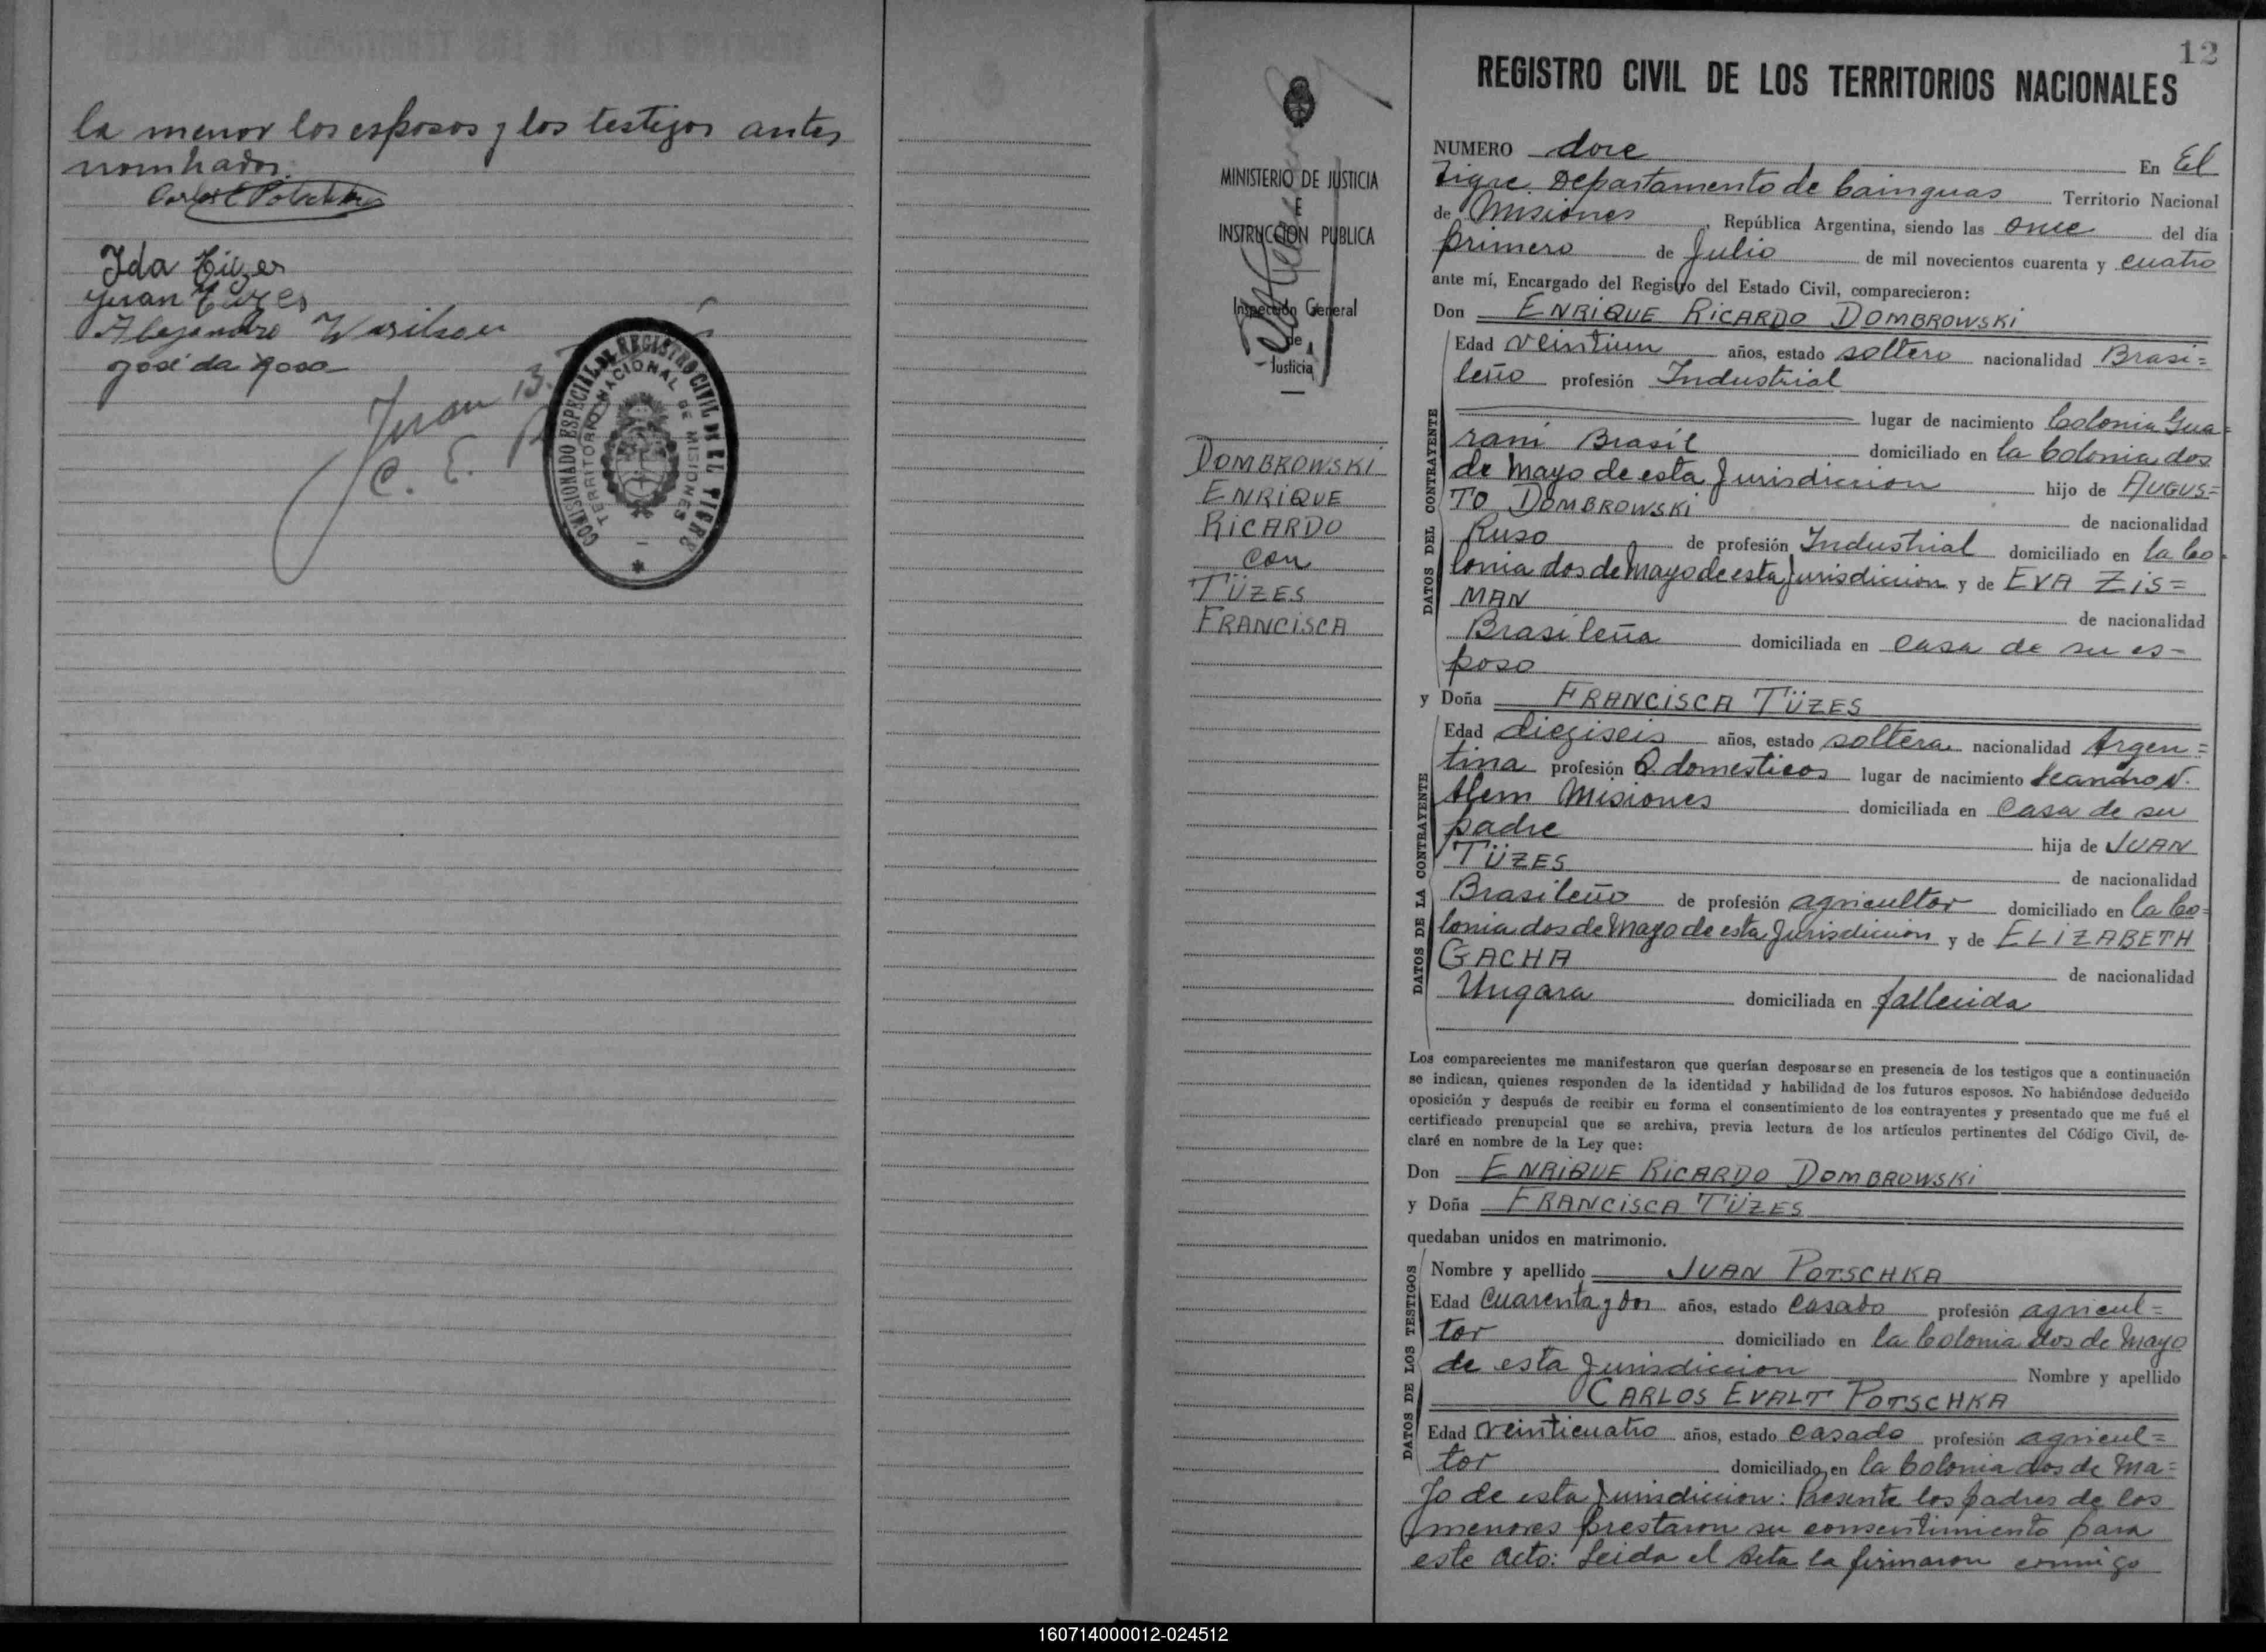 la menor los esposos y los testigos antes
nombrados.
Ida Tüzes
Juan Tüzes
Alejandro
José da Rosa
Juan B.
C. E.
COMISIONADO ESPECIAL DE REGISTRO CIVIL DE EL TIGRE
TERRITORIO NACIONAL DE MISIONES
MINISTERIO DE JUSTICIA
E
INSTRUCCION PUBLICA
Inspección General
de
Justicia
DOMBROWSKI
ENRIQUE
RICARDO
con
TÜZES
FRANCISCA
12
REGISTRO CIVIL DE LOS TERRITORIOS NACIONALES
NUMERO doce En El
Tigre Departamento de Cainguas Territorio Nacional
de Misiones, República Argentina, siendo las once del día
primero de Julio de mil novecientos cuarenta y cuatro
ante mí, Encargado del Registro del Estado Civil, comparecieron:
Don ENRIQUE RICARDO DOMBROWSKI
DATOS DEL CONTRAYENTE
Edad veintiun años, estado soltero nacionalidad Brasi=
leño profesión Industrial
lugar de nacimiento Colonia Gua=
rani Brasil domiciliado en la Colonia dos
de Mayo de esta Jurisdicion hijo de AUGUS=
TO DOMBROWSKI de nacionalidad
Ruso de profesión Industrial domiciliado en la Co=
lonia dos de Mayo de esta Jurisdicion y de EVA ZIS=
MAN de nacionalidad
Brasileña domiciliada en casa de su es=
poso
y Doña FRANCISCA TÜZES
DATOS DE LA CONTRAYENTE
Edad dieziseis años, estado soltera nacionalidad Argen=
tina profesión Q. domesticos lugar de nacimiento Leandro N.
Alem Misiones domiciliada en Casa de su
padre hija de JUAN
TÜZES de nacionalidad
Brasileño de profesión agricultor domiciliado en la Co=
lonia dos de Mayo de esta Jurisdicion y de ELIZABETH
GACHA de nacionalidad
Ungara domiciliada en fallecida
Los comparecientes me manifestaron que querían desposarse en presencia de los testigos que a continuación
se indican, quienes responden de la identidad y habilidad de los futuros esposos. No habiéndose deducido
oposición y después de recibir en forma el consentimiento de los contrayentes y presentado que me fué el
certificado prenupcial que se archiva, previa lectura de los artículos pertinentes del Código Civil, de-
claré en nombre de la Ley que:
Don ENRIQUE RICARDO DOMBROWSKI
y Doña FRANCISCA TÜZES
quedaban unidos en matrimonio.
DATOS DE LOS TESTIGOS
Nombre y apellido JUAN POTSCHKA
Edad Cuarenta y dos años, estado Casado profesión agricul=
tor domiciliado en la Colonia dos de Mayo
de esta Jurisdiccion Nombre y apellido
CARLOS EVALT POTSCHKA
Edad veinticuatro años, estado casado profesión agricul=
tor domiciliado en la Colonia dos de Ma=
yo de esta Jurisdicion: Presente los padres de los
menores prestaron su consentimiento para
este acto: Leida el Acta la firmaron conmigo
160714000012-024512